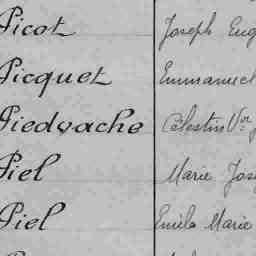 Picot Joseph Eug
Picquet Emmanuel
Piedvache Célestin Vor
Piel Marie Jos
Piel Emile Marie